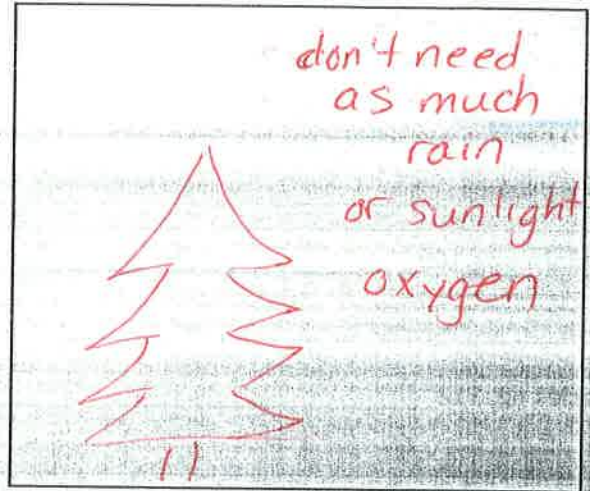 don't need
as much
rain
or sunlight
oxygen